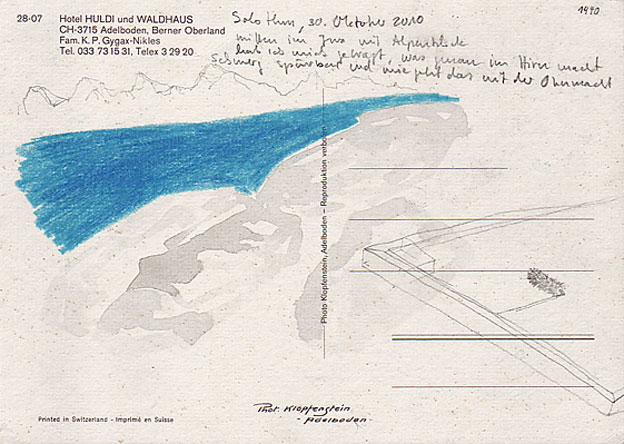 28-07 Hotel HULDI und WALDHAUS
CH-3715 Adelboden, Berner Oberland
Fam. K. P. Gygax-Nikles
Tel. 033 73 15 31, Telex 3 29 20
Solothurn, 30. Oktober 2010
mitten im Jura mit Alpenblick
hab ich mich gefragt, was genau im Hirn macht
Schmerz spürbar und wie geht das mit der Ohnmacht
1490
Photo Klopfenstein, Adelboden – Reproduktion verboten
Phot. Klopfenstein
- Adelboden -
Printed in Switzerland - Imprimé en Suisse